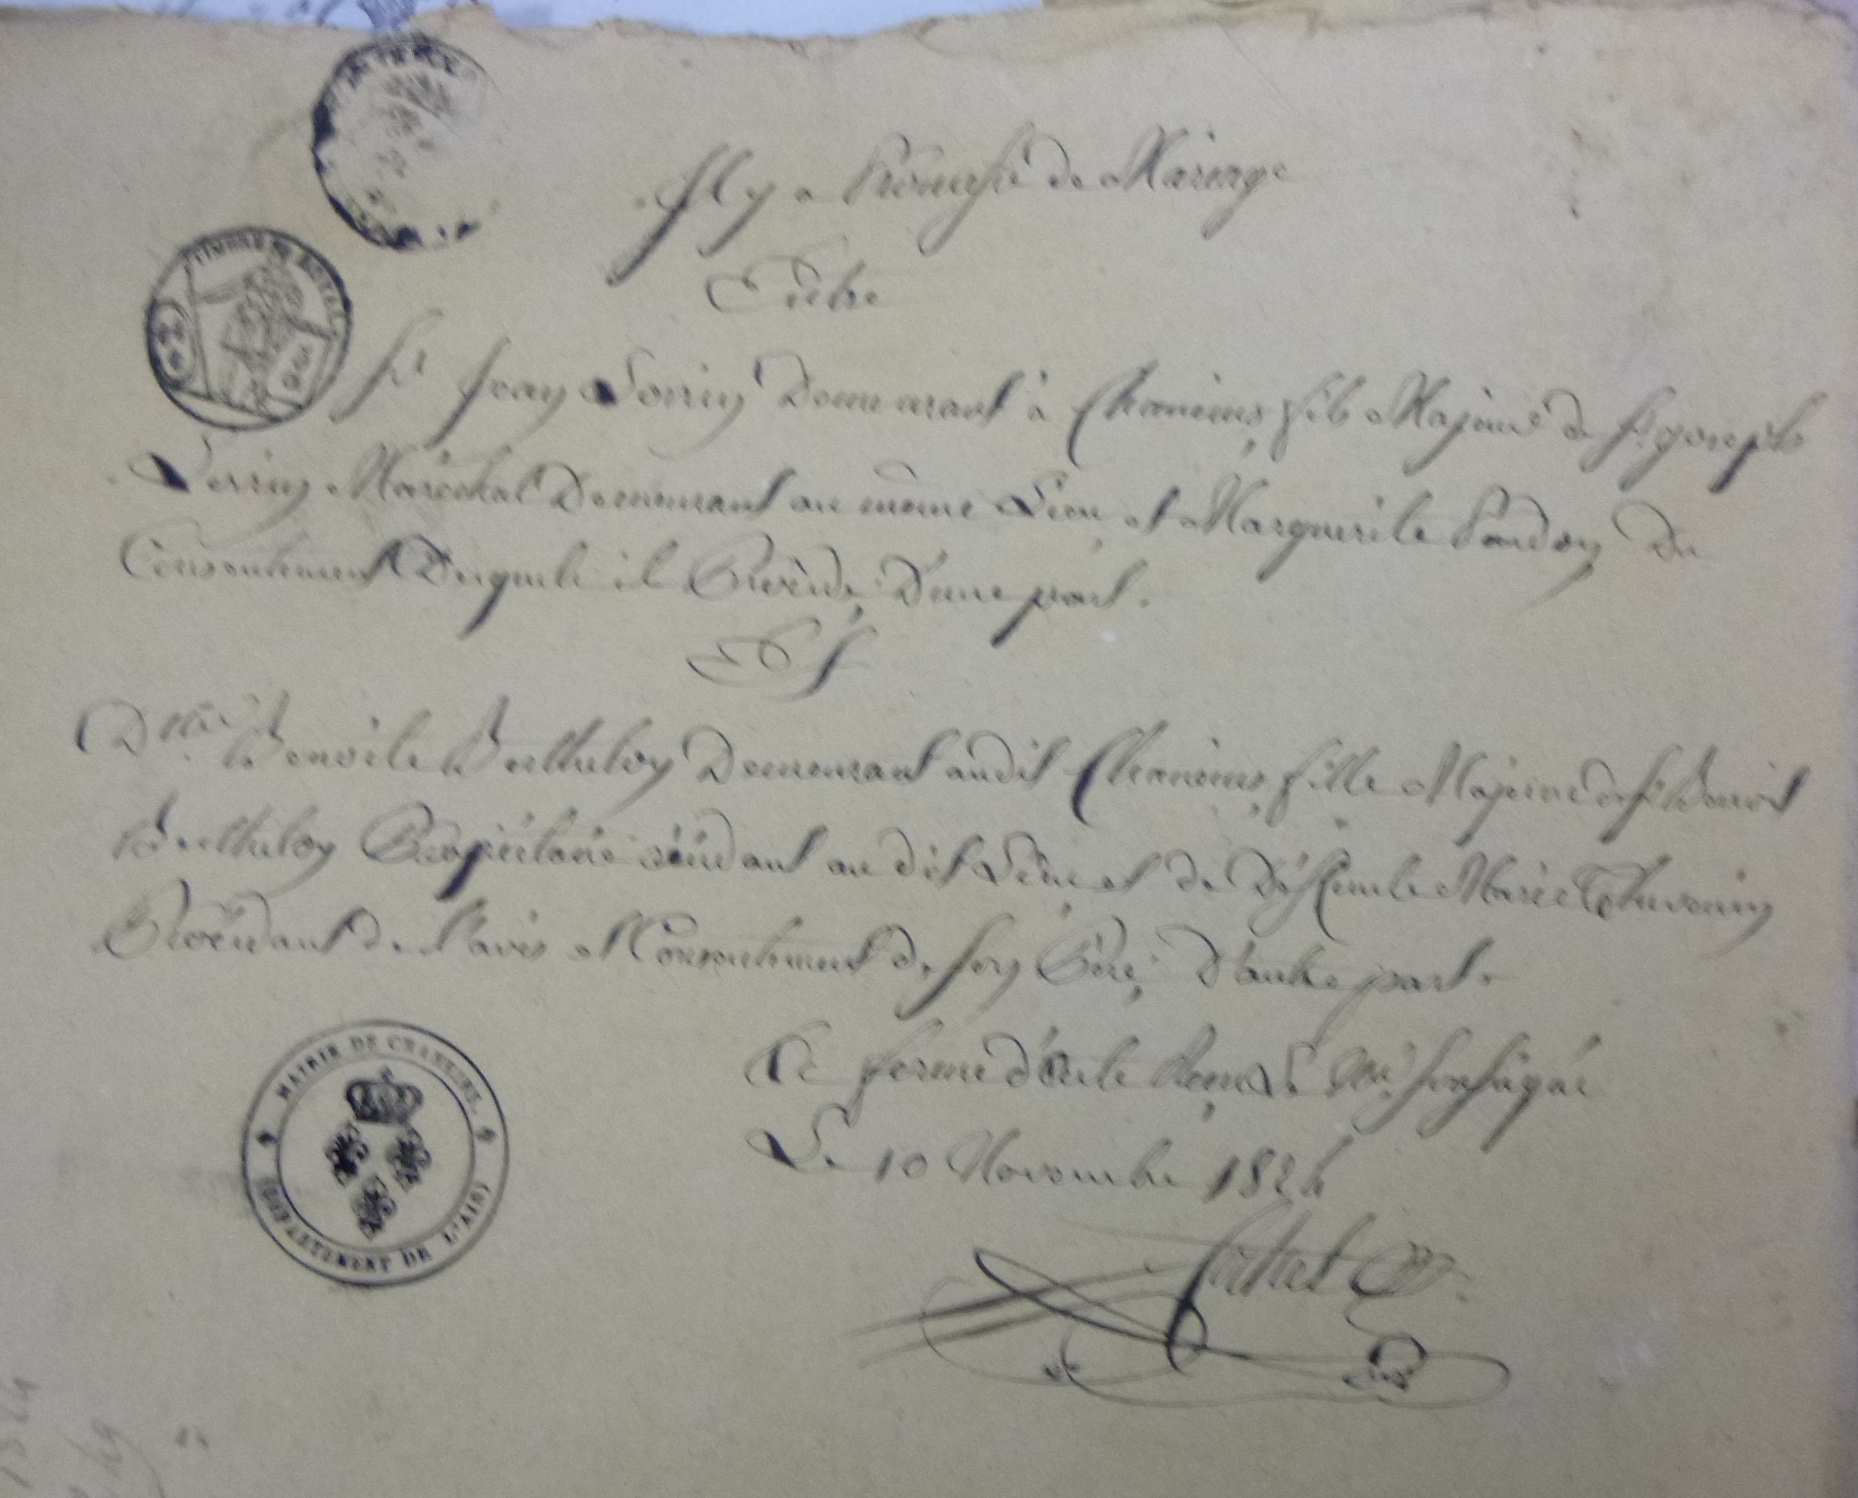 Il y a Promesse de Mariage
Entre
Sr Jean Perrin Demeurant à Chaneins, fils Majeur de Sr joseph
Perrin Maréchal Demeurant au même Lieu, et Marguerite Du
Consentement Desquels il Procède, D'une part.
Et
Dlle Benoite Berthelon Demeurant audit Chaneins, fille Majeure de Sr Benoit
Berthelon Propriétaire résidant au dit Lieu, et de Défunte Marie Thevenin
Procédant de l'avis et Consentement de son Père, D'autre part.
le Soussigné
Le 10 Novembre 1824
TIMBRE ROYAL
MAIRIE DE CHANEINS.
(DÉPARTEMENT DE L'AIN)